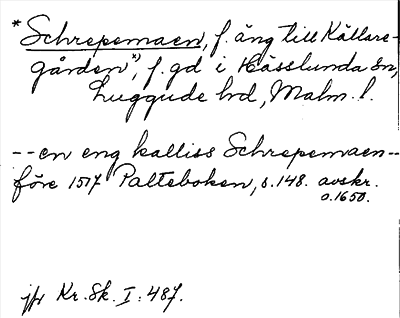 *Schrepemaen, f. äng till Källare-
gården*, f. gd i Hässlunda sn,
Luggude hd, Malm. l.
-- en eng kalliss Schrepemaen --
före 1517 Palteboken, s. 148. avskr.
o. 1650.
jfr Kr. Sk. I: 487.